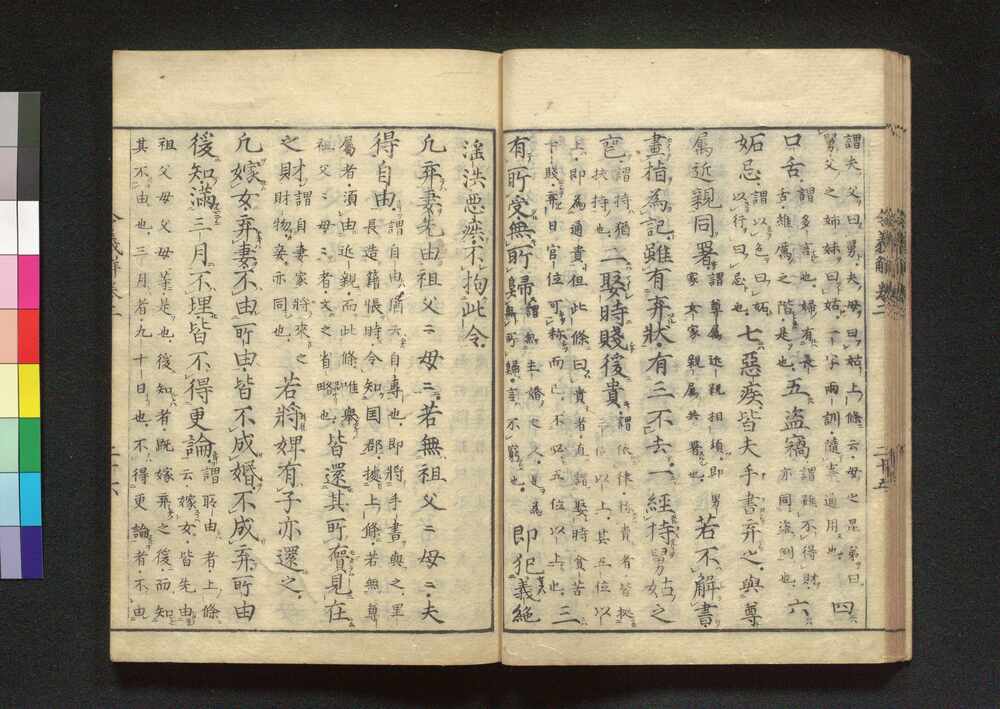 謂夫父曰舅夫母曰姑上條云母之昆弟曰
舅父之姉妹曰姑一字兩訓隨事通用也
四
口舌
謂多言也婦有長
舌維厲之階是也
五盗竊
謂雖不得財
亦同盗例也
六
妬忌
謂以色曰妬
以行曰忌也
七惡疾皆夫手書弃之與尊
属近親同署
謂尊属近親相須即男
家女家親属共署也
若不解書
畫指為記雖有弃状有三不去一經持舅姑之
喪
謂持猶
扶持也
二娶時賤後貴
謂依律称貴者皆據
三位以上其五位以
上即為通貴但此條曰貴者直謂娶時貧苦
下賤弃日官位可称而已不必五位以上也
三
有所受無所歸
謂無主婚之人是為
無所歸言不窮也
即犯義絶
淫泆惡疾不拘此令
凢弃妻先由祖父〻母〻若無祖父〻母〻夫
得自由
謂自由猶云自專也即將手書與之里
長造籍帳時令知国郡據上條若無尊
属者須由近親而此條唯舉
祖父〻母〻者文之省略也
皆還其所齎見在
之財
謂自妻家將來之
財物妾亦同也
若將婢有子亦還之
凢嫁女弃妻不由所由皆不成婚不成弃所由
後知滿三月不理皆不得更論
謂所由者上條
云嫁女皆先由
祖父母父母等是也後知者既嫁弃之後而知
其不由也三月者九十日也不得更論者不由